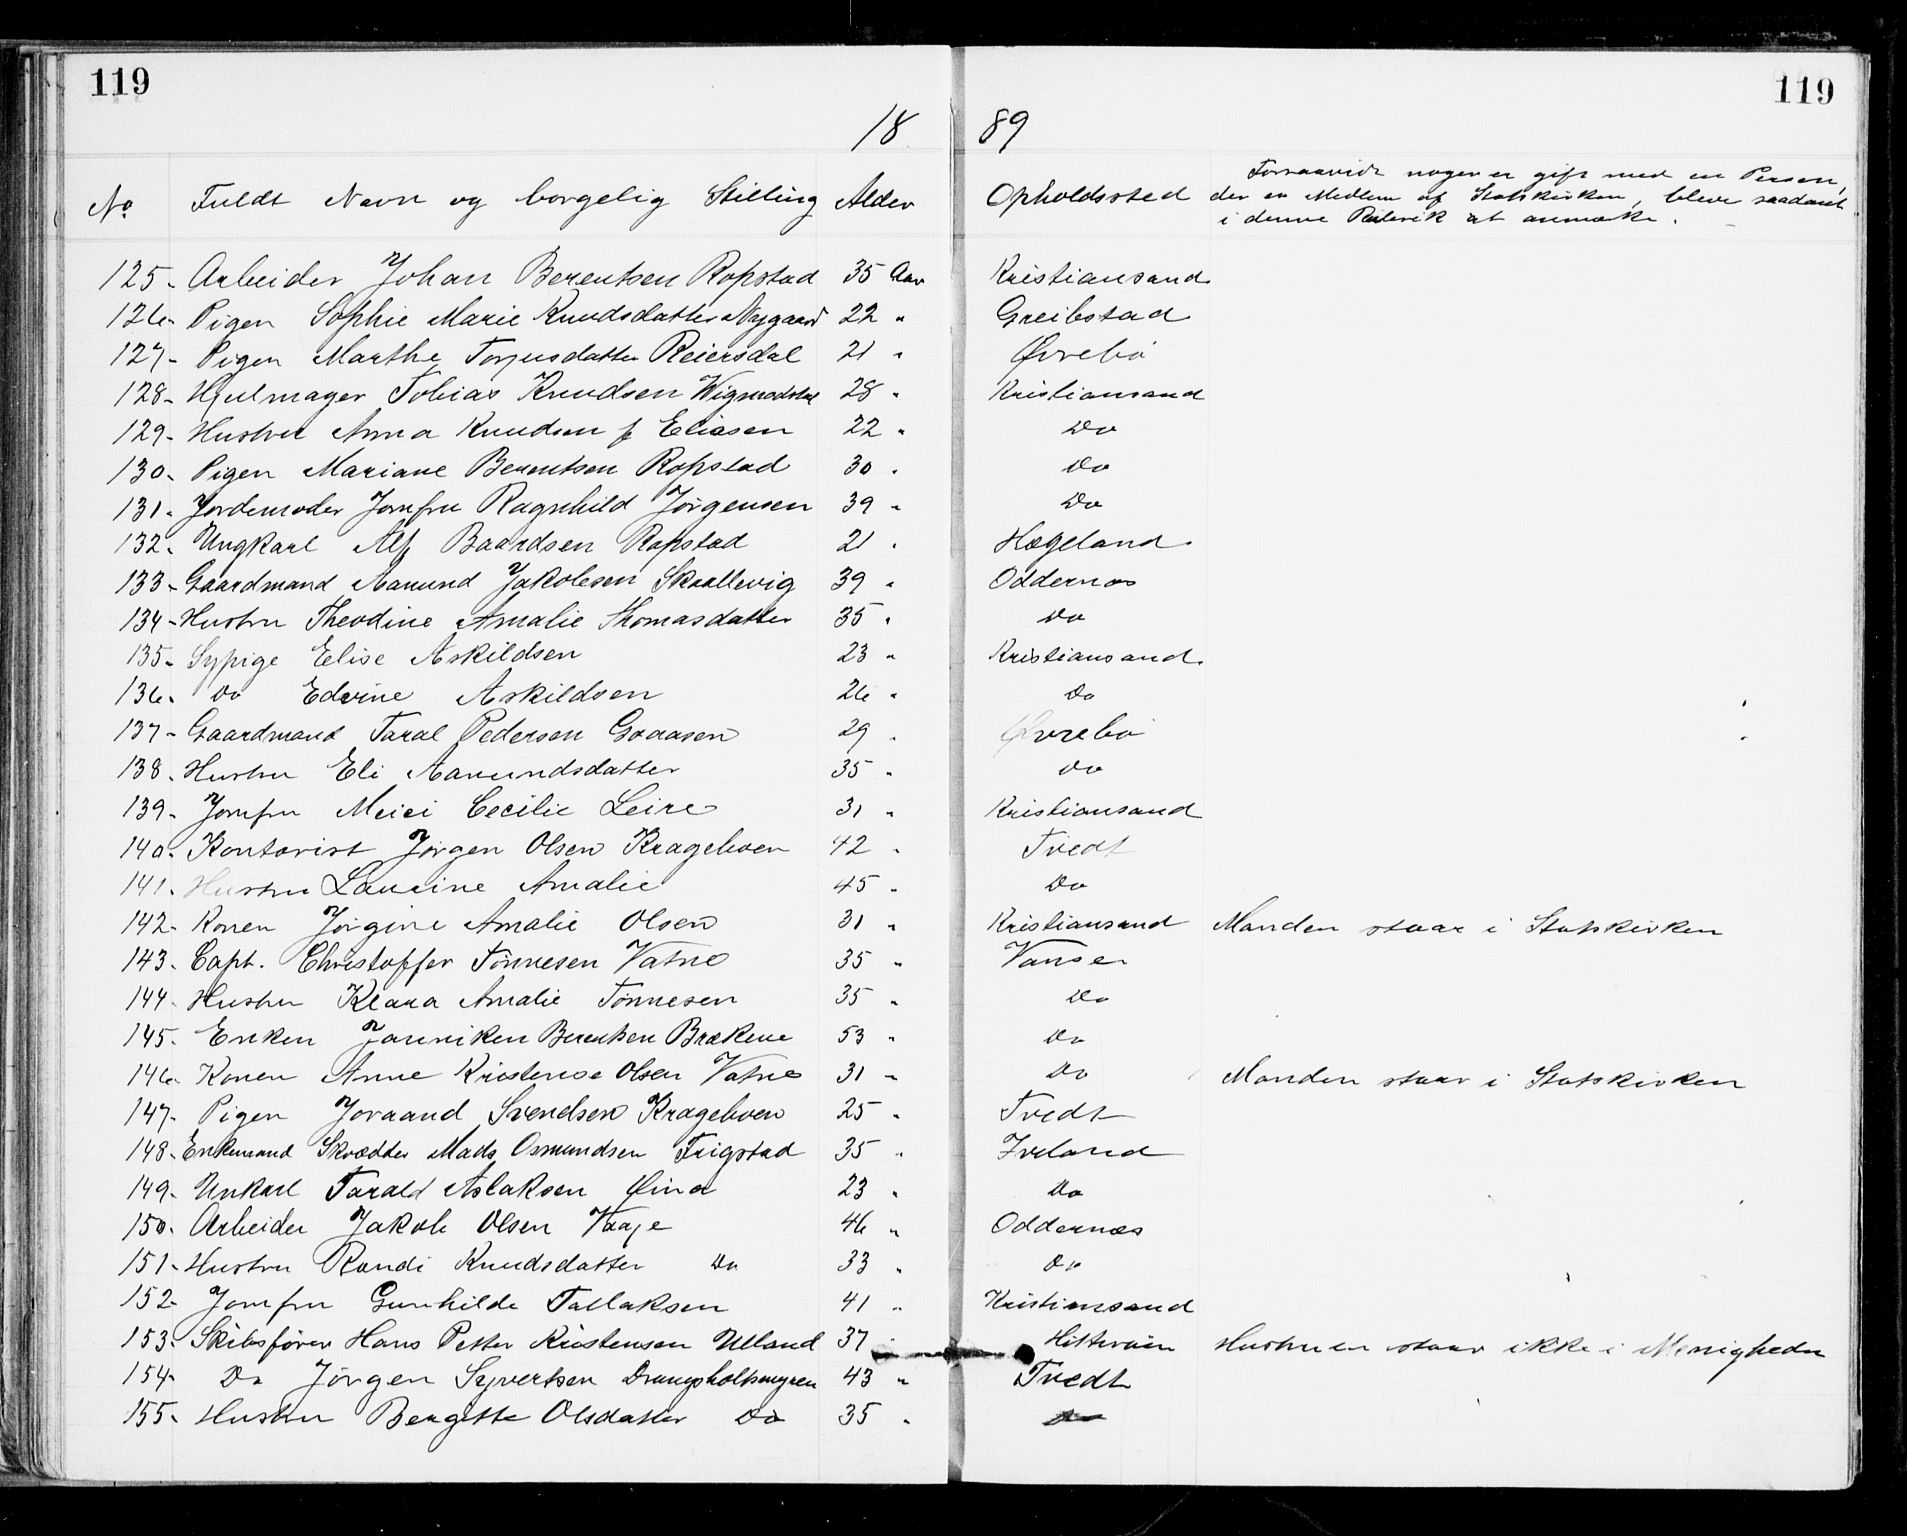 119 119
18 89
No Fuldt Navn og borgelig Stilling Alder Opholdssted Forsaavidt nogen er gift med en Person,
der er Medlem af Statskirken, bliver saadant
i denne Rubrik at anmærke.
125. Arbeider Johan Berentsen Ropstad 35 Aar Kristiansand
126. Pigen Sophie Marie Knudsdatter Nygaard 22 " Greibstad
127. Pigen Marthe Torjusdatter Reiersdal 21 " Øvrebø
128. Hjulmager Tobias Knudsen Wigmodstad 28 " Kristiansand
129. Hustru Anna Knudsen f. Eliasen 22 " Do
130. Pigen Mariane Berentsen Ropstad 30 " Do
131. Jordemoder Jomfru Ragnhild Jørgensen 39 " Do
132. Ungkarl Alf Baardsen Ropstad 21 " Hægeland
133. Gaardmand Aanund Jakobsen Skaallevig 39 " Oddernæs
134. Hustru Theodine Amalie Thomasdatter 35 " Do
135. Sypige Elise Askildsen 23 " Kristiansand
136. Do Edvine Askildsen 26 " Do
137. Gaardmand Taral Pedersen Graaasen 29 " Øvrebø
138. Hustru Eli Aanundsdatter 35 " Do
139. Jomfru Meiei Cecilie Leire 31 " Kristiansand
140. Kontorist Jørgen Olsen Krageboen 42 " Tvedt
141. Hustru Laurine Amalie 45 " Do
142. Konen Jørgine Amalie Olsen 31 " Kristiansand Manden staar i Statskirken
143. Capt. Christoffer Tønnesen Vatne 35 " Vanse
144. Hustru Klara Amalie Tønnesen 35 " Do
145. Enken Janniken Berentsen Brækene 53 " Do
146. Konen Anne Kristense Olsen Vatne 31 " Do Manden staar i Statskirken
147. Pigen Joraand Svendsen Krageboen 25 " Tvedt
148. Enkemand Skrædder Mads Osmundsen Frigstad 35 " Iveland
149. Unkarl Tarald Aslaksen Øina 23 " Do
150. Arbeider Jakob Olsen Vaaje 46 " Oddernæs
151. Hustru Randi Knudsdatter Do 33 " Do
152. Jomfru Gunhilde Tallaksen 41 " Kristiansand
153. Skibsfører Hans Petter Kristensen Ulland 37 Hitterøen Hustruen staar ikke i Menigheden
154. Do Jørgen Syvertsen Drangsholtsmyren 43 " Tvedt
155. Hustru Bergitte Olsdatter Do 35 " Do